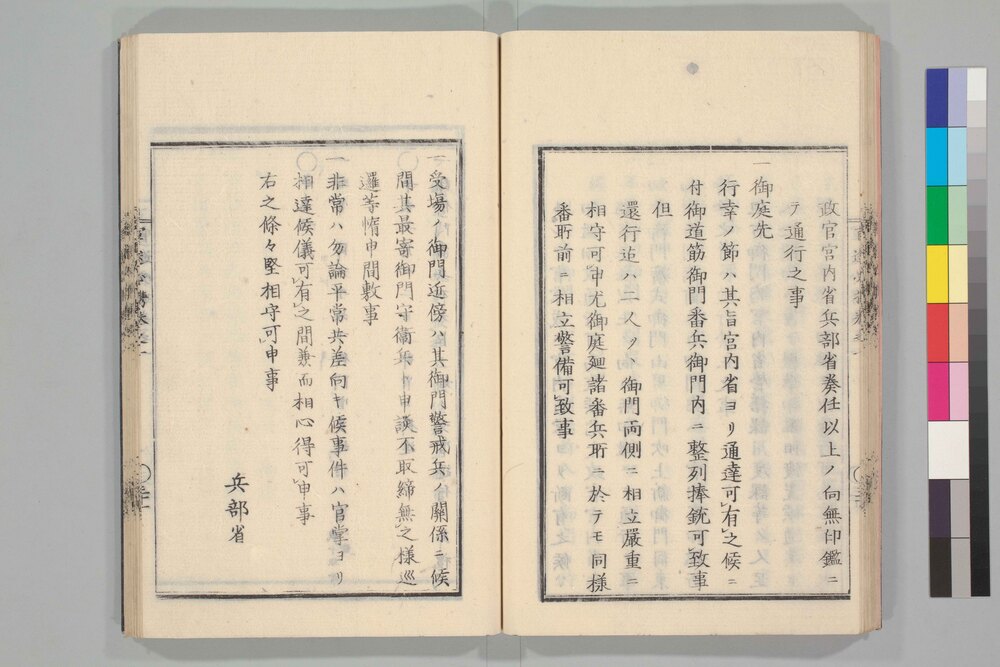 政官宮内省兵部省奏任以上ノ向無印鑑ニ
テ通行之事
一御庭先
行幸ノ節ハ其旨宮内省ヨリ通達可有之候ニ
付御道筋御門番兵御門内ニ整列捧銃可致事
但
還行迄ハ二人ツヽ御門両側ニ相立嚴重ニ
相守可申尤御庭廻諸番兵所ニ於テモ同様
番所前ニ相立警備可致事
一受場ノ御門近傍ハ其御門警戒兵ノ關係ニ候
間其最寄御門守衞兵ト申談不取締無之様巡
邏等惰申間敷事
一非常ハ勿論平常共差向キ候事件ハ官掌ヨリ
相達候儀可有之間兼而相心得可申事
右之條々堅相守可申事
兵部省